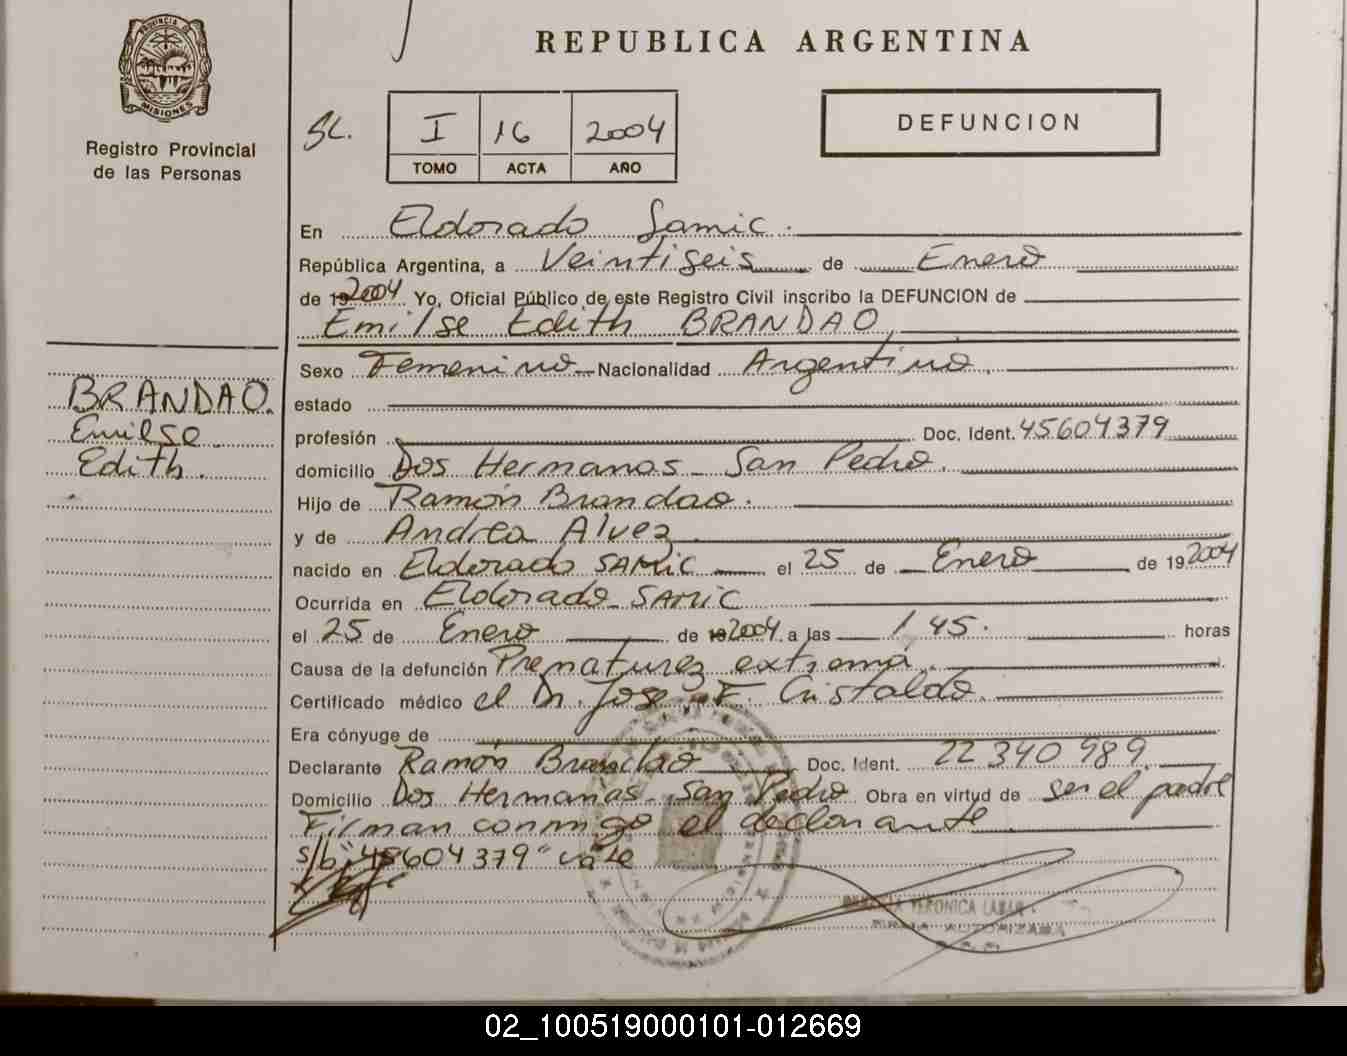 REPUBLICA ARGENTINA
PROVINCIA DE
MISIONES
Registro Provincial
de las Personas
SL.
I 16 2004
TOMO ACTA AÑO
DEFUNCION
En Eldorado Samic.
República Argentina, a Veintiseis de Enero
de 192004 Yo, Oficial Público de este Registro Civil inscribo la DEFUNCION de
Emilse Edith BRANDAO
Sexo Femenino Nacionalidad Argentino
BRANDAO.
Emilse
Edith.
estado
profesión Doc. Ident. 45604379
domicilio Dos Hermanas - San Pedro.
Hijo de Ramón Brandao.
y de Andrea Alvez
nacido en Eldorado SAMIC el 25 de Enero de 192004
Ocurrida en Eldorado SAMIC
el 25 de Enero de 192004 a las 1 45. horas
Causa de la defunción Prematurez extrema.
Certificado médico el Dr. Jose F. Cristaldo.
Era cónyuge de
Declarante Ramón Brandao Doc. Ident. 22 340 989.
Domicilio Dos Hermanas - San Pedro Obra en virtud de ser el padre
Firman conmigo el declarante
s/b "45604379" vale
VERONICA
AUTORIZADA
02_100519000101-012669